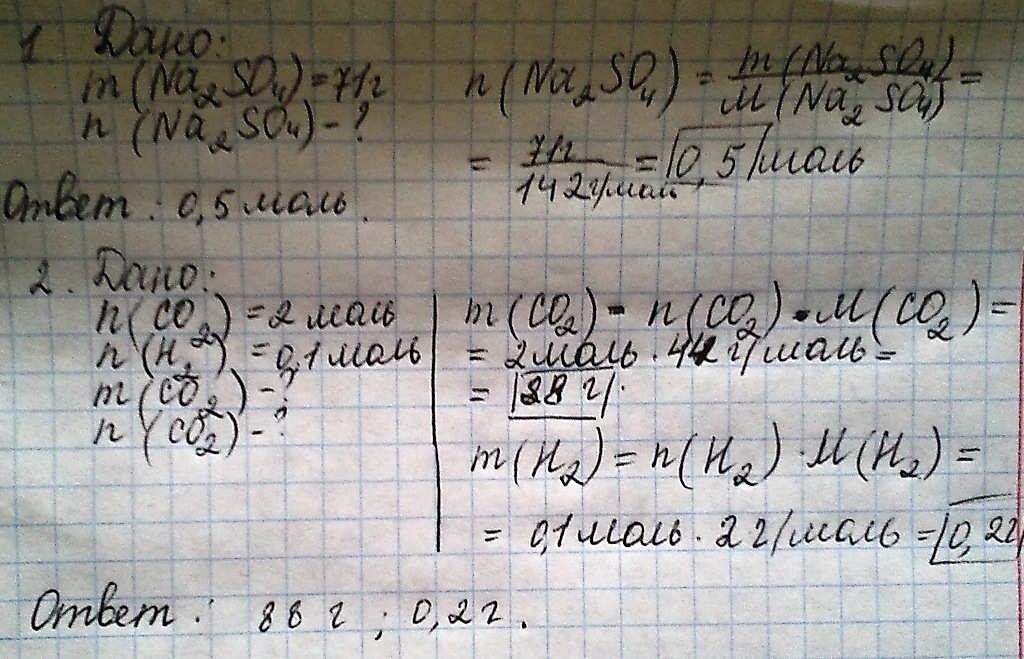 1. Дано:
m(Na₂SO₄)=71г
n(Na₂SO₄)-?
n(Na₂SO₄) = m(Na₂SO₄)/M(Na₂SO₄) =
= 71г/142г/моль = 0,5 моль
Ответ: 0,5 моль.
2. Дано:
n(CO₂)=2 моль
n(H₂)=0,1 моль
m(CO₂)-?
n(CO₂)-?
m(CO₂) = n(CO₂)·M(CO₂) =
= 2 моль · 44 г/моль =
= 88 г.
m(H₂) = n(H₂)·M(H₂) =
= 0,1 моль · 2 г/моль = 0,2г
Ответ: 88 г; 0,2 г.